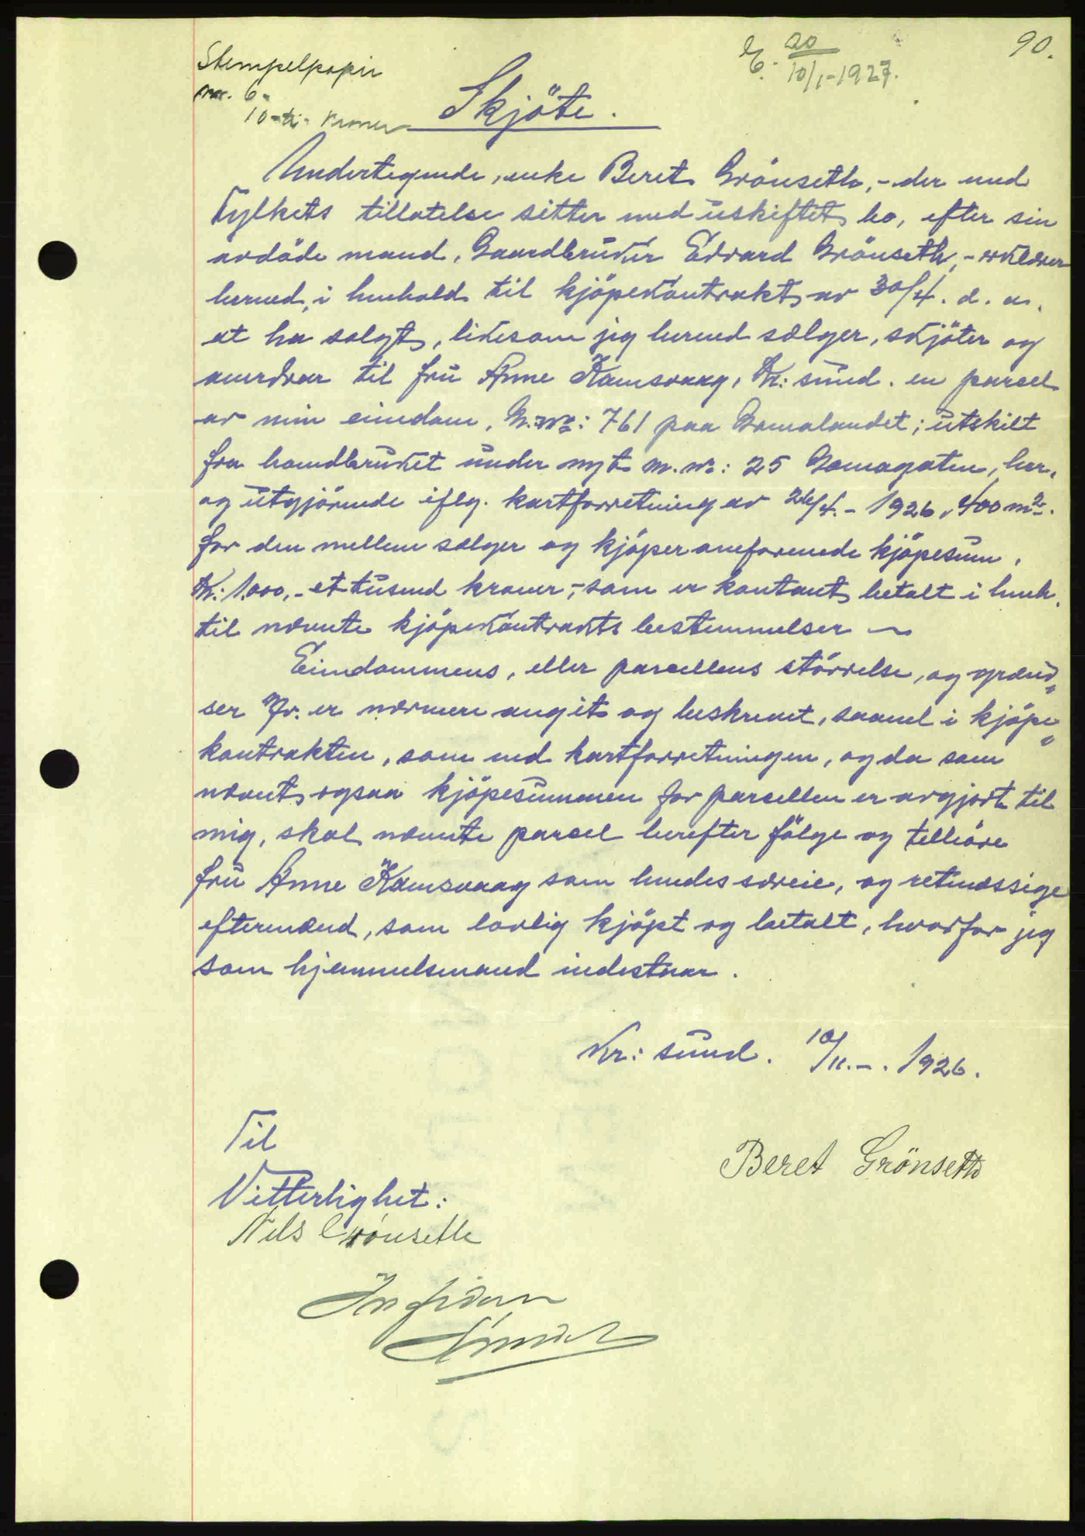 90.
20
10/1-1927.
Stempelpapir
nr. 6-
10-ti- Kroner
Skjöte.
Undertegnede, enke Beret Grönseth, - der med
Fylkets tillatelse sitter med uskiftet bo, efter sin
avdöde mand, Gaardbruker Edvard Grönseth, - erklærer
herved, i henhold til kjöpekontrakt av 30/4. d. a.
at ha solgt, likesom jeg herved sælger, skjöter og
averdrar til fru Anne Kamsvaag, Kr: sund. en parcel
av min eiendom, G. No: 761 paa Gomalandet; utskilt
fra hovedbruket under nyt M. No: 25 Gomagaten, her,
og utgjörende iflg. kartforretning av 26/4. - 1926, 400 m2.
for den mellem sælger og kjöper omforenede kjöpesum,
Kr: 1.000,- et tusend kroner,- som er kontant betalt i henh.
til nævnte kjöpekontrakts bestemmelser
Eiendommens, eller parcellens störrelse, og grænd„
ser Jr. er nærmere angit og beskrevet, saavel i kjöpe„
kontrakten, som ved kartforretningen, og da som
nævnt, ogsaa kjöpesummen for parcellen er avgjort til
mig, skal nævnte parcel herefter fölge og tilhöre
fru Anne Kamsvaag som hendes særeie, og retmæssige
eftermænd, som lovlig kjöpt og betalt, hvorfor jeg
som hjemmelsmand indestaar.
Kr: sund. 10/11.-. 1926.
Til
Beret Grönseth
Vitterlighet:
Nils Grönseth